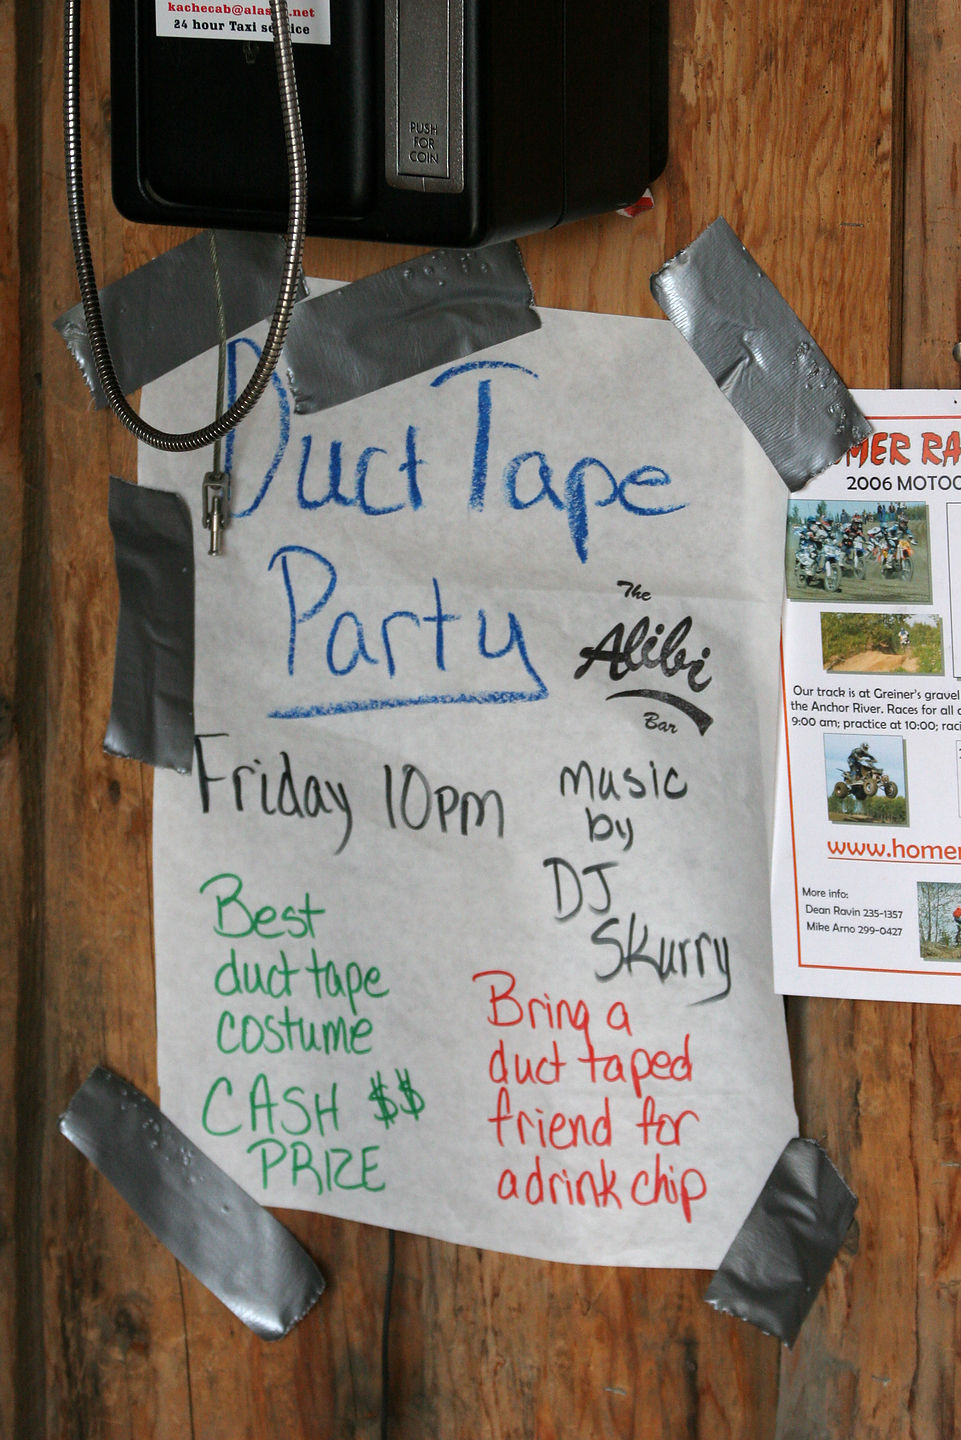 kachecab@alas
.net
24 hour Taxi se
ice
PUSH
FOR
COIN
Duct Tape
Party
The
Alibi
Bar
Friday 10pm
music
by
DJ
Skurry
Best
duct tape
costume
CASH $$
PRIZE
Bring a
duct taped
friend for
a drink chip
MER RA
2006 MOTOC
Our track is at Greiner's gravel
the Anchor River. Races for all
9:00 am; practice at 10:00; raci
www.homer
More info:
Dean Ravin 235-1357
Mike Arno 299-0427